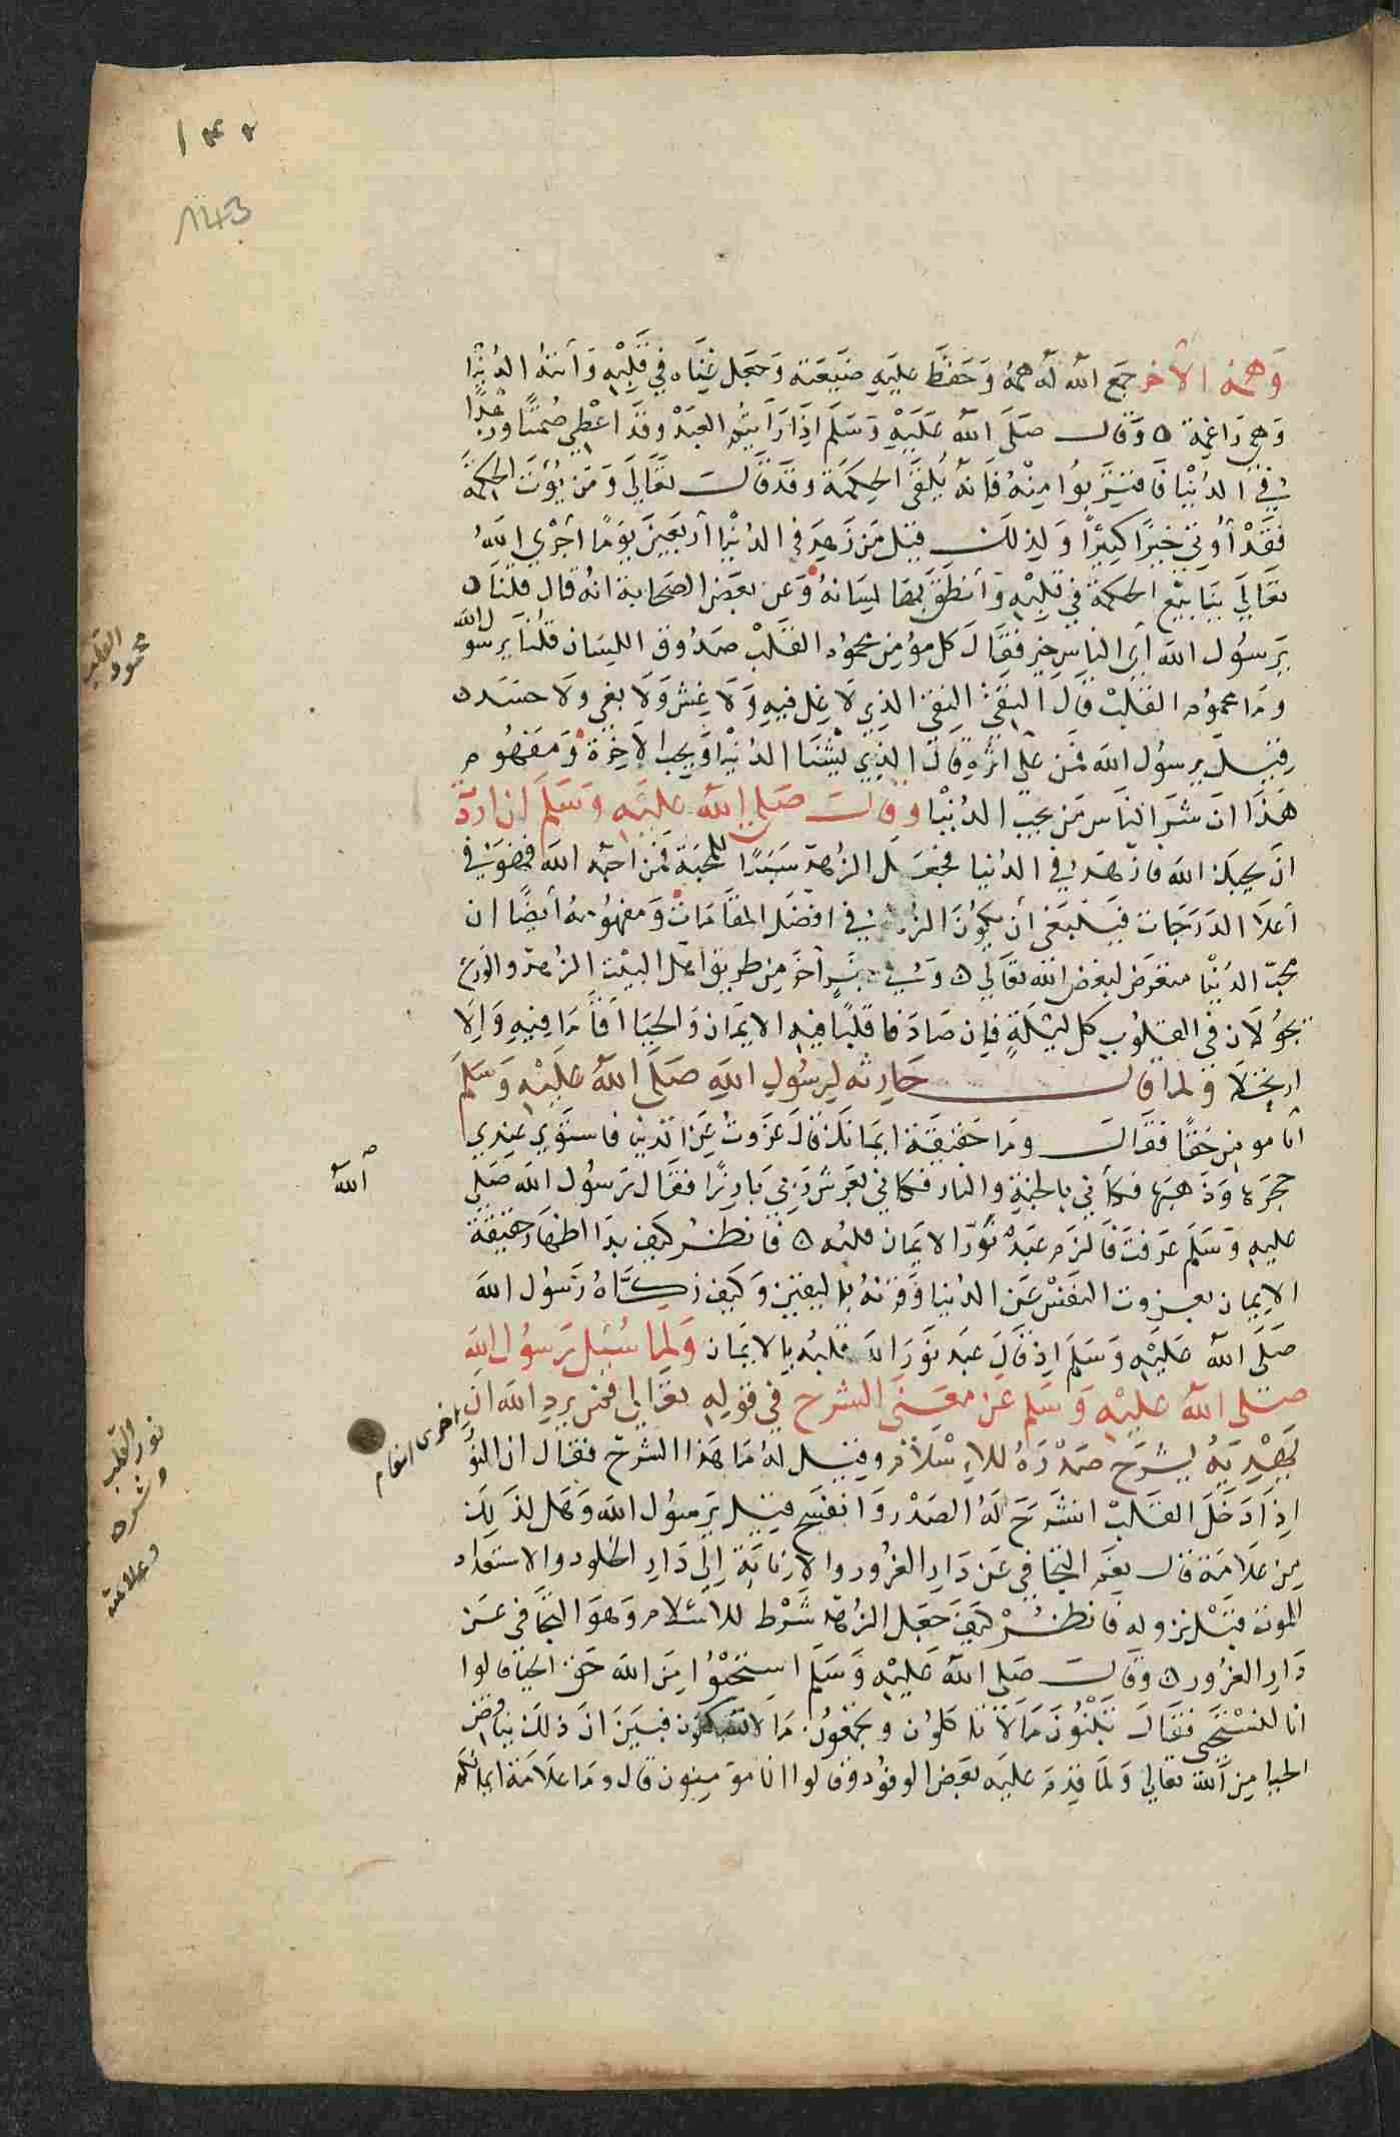 ١٤٣
143
وَهمّهُ الآخر جمَع الله لَه همّهُ وَحَفظَ عليَهِ ضيَعَته وَجعَل غِنَاه فِي قَلبِهِ وَأتتهُ الدُنيَا
وَهي رَاغِمَة ٥ وَقالـــ صَلىَ اللهُ عَلَيْهِ وَسَلم اذَا رَأيَتُم العَبَدْ وقدَ اعْطِي صُمتًا وزُهْدًا
فِي الدُنيْا فَاقتَرِبوُا مِنْهُ فَانهُ يُلقىَ الحِكمَة وقَد قَالــَ تعَالىَ وَمَن يُؤتَ الحِكمَة
فقَدْ أُوتِيَ خيرًا كثِيرًا وَلِذلكـ قيل مَن زَهِدَ فى الدُنيْا أربَعِينَ يوَمًا أجْرىَ اللهُ
تعَالىَ ينَابيَع الحكمَة فِي قلبِهِ وَأنطَقَ بِهَا لِسَانهُ وَعن بعَض الصَحَابة انهُ قال قلنَا ٥
يَرسُول الله أَي النَاسِ خير فقَالَ كل موُمِن محموُم القَلبْ صَدوُق اللِسَان قلنَا يَرسوُل الله
وَمَا محموُم القَلبْ قالَ التقىُ النِقىُ الذِي لَا غِل فيهِ وَلَا غِشَ وَلَا بغي ولَا حسَد ٥
وقيل يرسوُل الله فمَن علىَ اثرِهِ قالَ الذِي يَشنَا الدُنيْا وَيحِب الاخِرَة وَمفهُوم
هَذَا انَ شَرَ النَاس مَن يحِب الدُنيْا وقالــَ صَلى اللهُ عليَهِ وَسَلَم ان ارَدَت
انَ يحِبكَ الله فازهَد فِي الدُنيا فجعَل الزُهدَ سَببًا للمحَبَة فمَن احَبه الله فهوَ فِي
أعلاَ الدَرَجَات فيَنبَغى أن يكوُنَ الزُهد فِي افضَل المقَامَات وَمفهوُمهُ أيضًا ان
محبّ الدُنيْا متعَرض لبغض الله تعَالي ٥ وَفِي خبَرٍ آخَر مِن طرِيق اهل البيَت الزُهدُ والوَرَع
يجوُلاَن فى القلوُبِ كل ليْلَةٍ فإن صَادَفا قلبًا فيهِ الايمَان وَالحيَا اقَامَا فيهِ وَاِلا
ارتحَلَا وَلمَا قالــَ حَارِثه لِرسُولِ اللهِ صَلىَ اللهُ عَلَيْهِ وَسَلمَ
انا مومِن حَقًا فقَالَ ومَا حَقيقَة ايمَانكَ قالَ عَزَفتُ عَن الدُنيا فاستَوىَ عِندِي
حجرَهَا وَذَهبَهَا فكأني بالجنةِ والنار فكانِي بِعَرشِ رَبِي بَارِزًا فقَال رَسوُل الله صَلي
الله
عليهِ وَسَلمَ عَرَفتَ فَالزَم عبَدْ نوَّر الايمَان قلبُه ٥ فَانظُر كيَف بدَا اظهَار حَقِيقَة
الايمِان بعزوف النَفسْ عَن الدُنيا وَقرَنهُ باليقِين وَكيفَ زَكـَّاهُ رَسوُل الله
صَلىَ اللهُ عَليَهِ وَسَلمَ اذِ قَالَ عبَد نوَرَ اللهَ قلبُه بالايمَان وَلما سُئِل رَسوُل اللهِ
صلى اللهُ عليْهِ وَسَلم عَن معَنىَ الشرح فِي قوَلِهِ تعَالى فمَن يرِدِ الله انَ
يَهْدِيهُ يشرَح صَدْرَهُ للاسْلاَم وقيل لهُ مَا هَذا الشرحَ فقَال ان النوُرَ
اِذَا دَخَلَ القلَبْ انشرَحَ لَهُ الصَدْر وَانفسَح قيل يَرسوُل الله وَهل لذَلِكَ
مِن عَلاَمَة قال نعَم التجَافِي عَن دَار الغرُور والاِنابَة اِلىَ دَار الخلود والاستعداد
للموت قبَل نزوله فَانظُرْ كيَف جعَل الزُهدَ شَرْط للاسْلام وَهوَ التجَافى عَن
دَار الغرُور ٥ وقَالَ صَلى اللهُ عَليْهِ وَسَلم استحَيوُا مِن الله حَق الحيَا قالوا
انا لنستَحي فقَالَ تبَنُونَ مَا لَا تسكنوُن وتجمَعُون مَا لَا تاكلون فبَينَ انَ ذلكَ ينَاقض
الحيا مِن الله تعَالى وَلمَا قدِمَ عليَه بعَض الوفوُد وقالوا انا مؤمِنون قال ومَا عَلاَمَة ايمانكم
محموم القلب
اخرى انعام
نور القلب
وشرحه
وعلامته